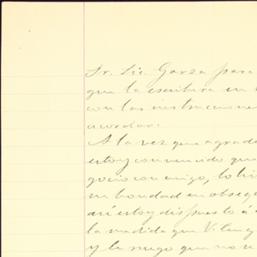 Sr. Lic Garza para
que la escritura en
con las instrucciones
acordar.
A la vez que agrade
estoy convencido que
gocio conmigo,
su bondad en obseq
así estoy dispuesto á
la medida que
y le ruego que no se